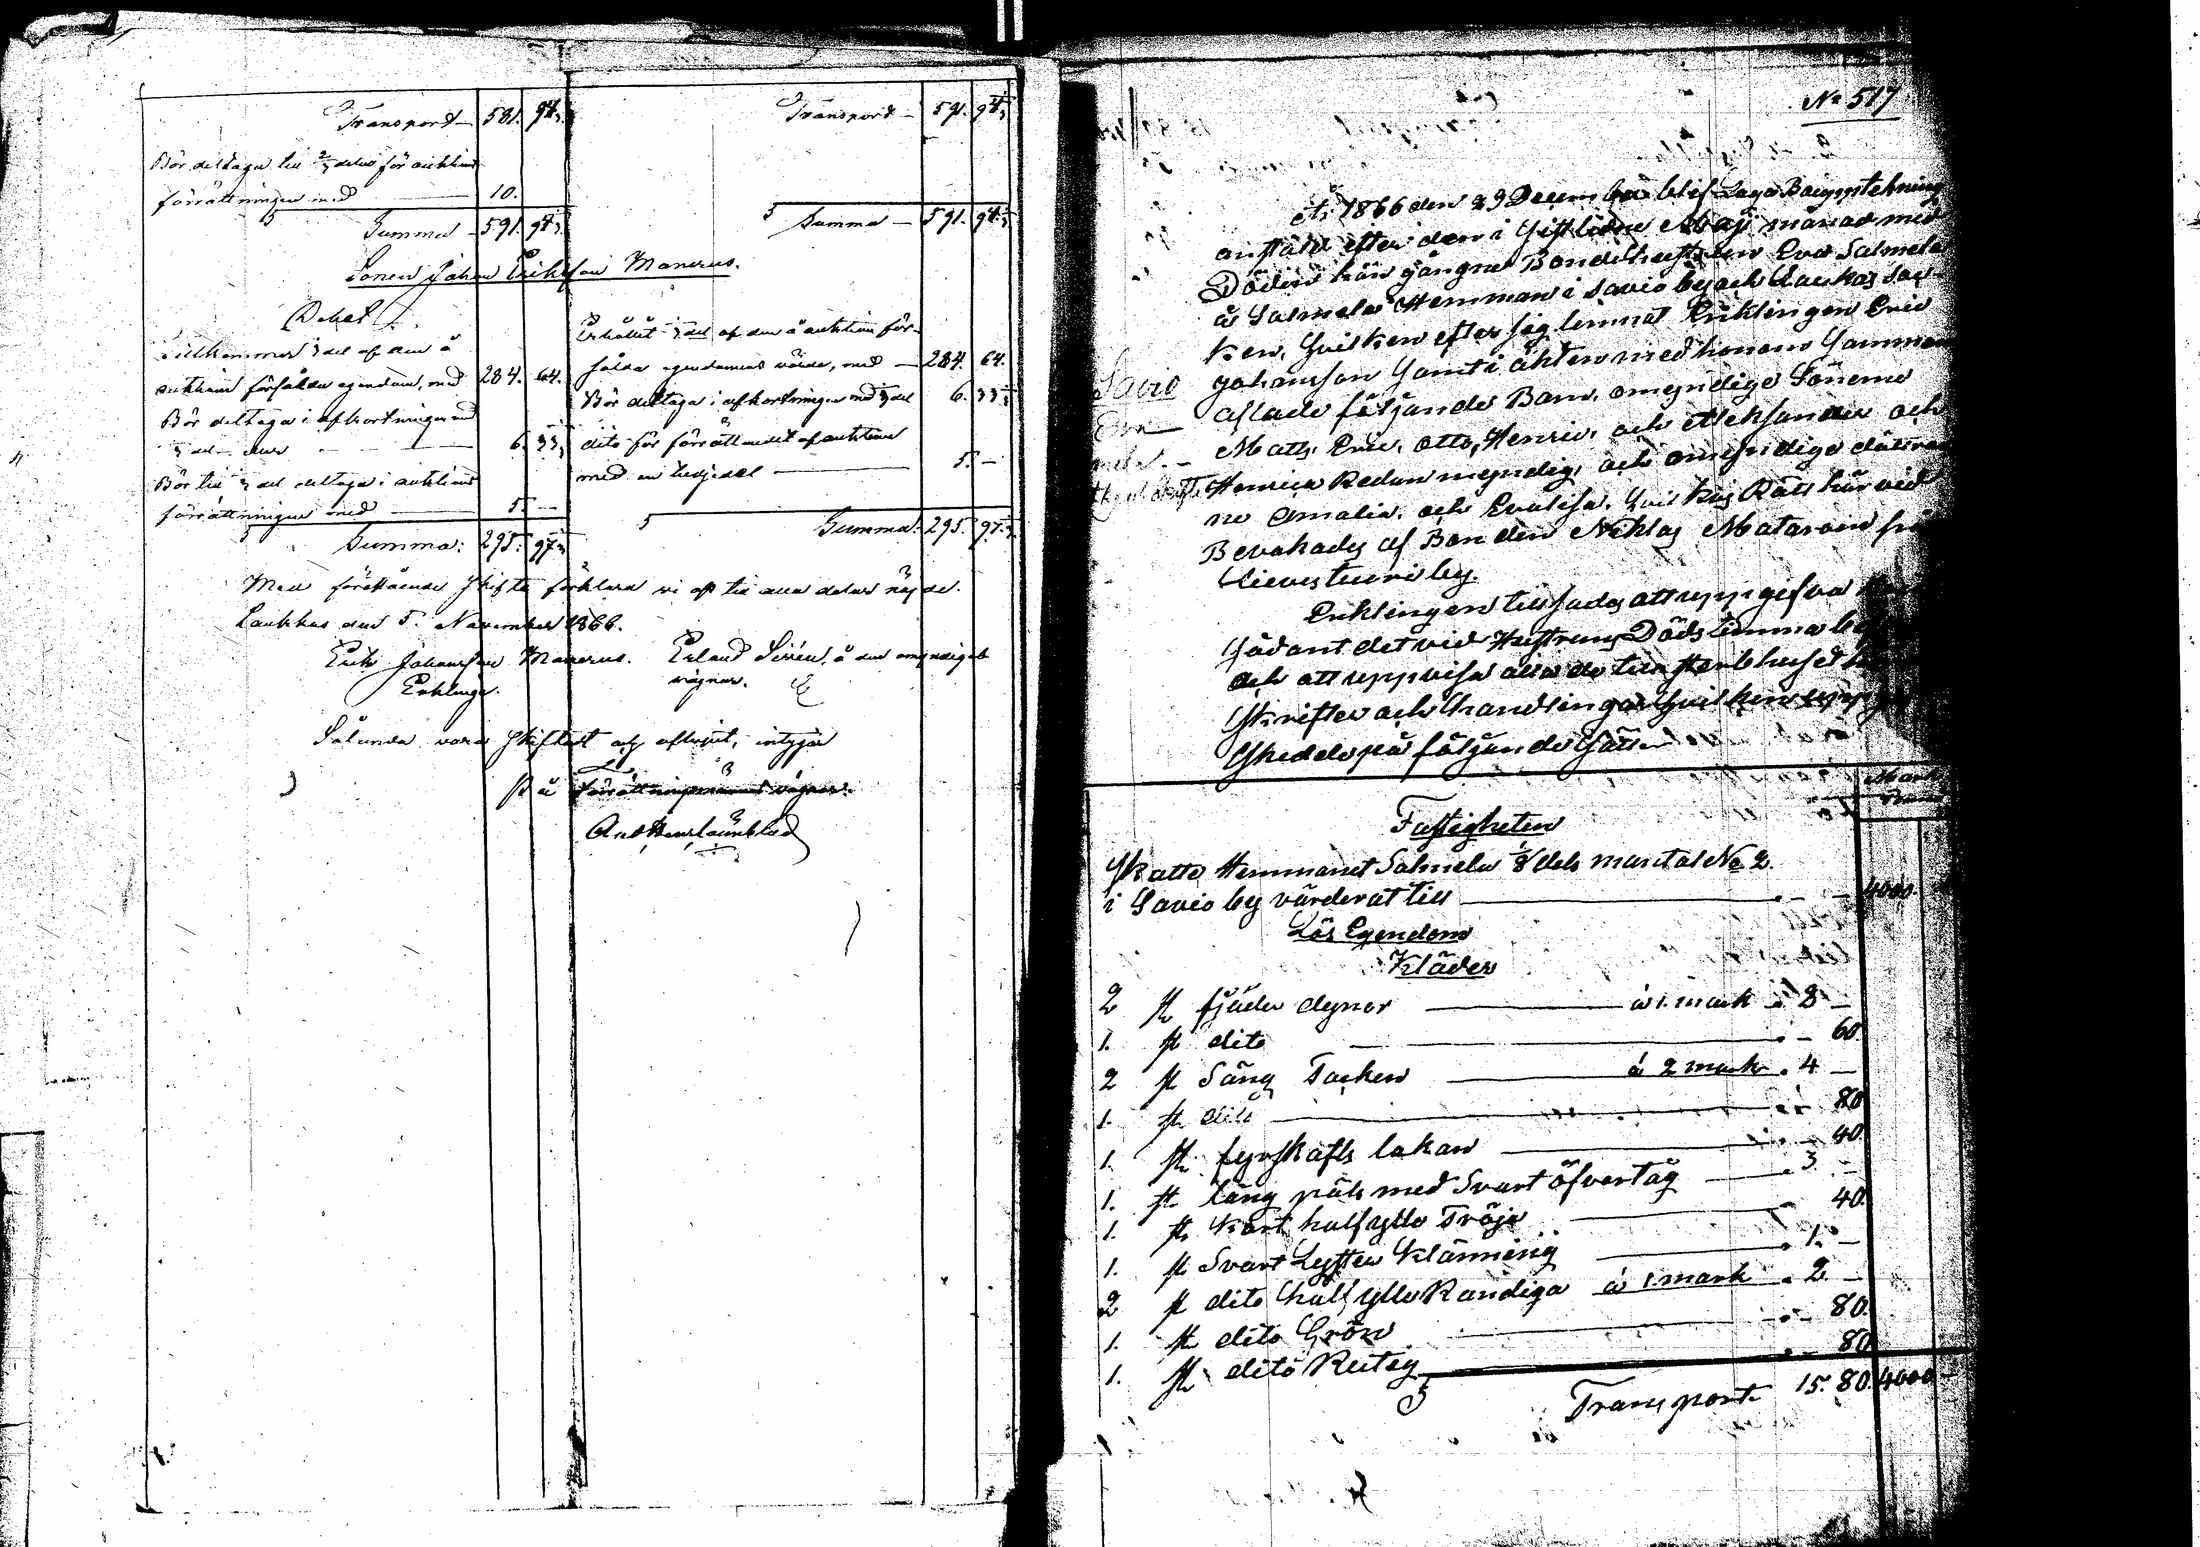 Transport — 581. 94 2/3
Bör deltaga till 2/3 delar för auktions
förrättningen med — 10.
Summa — 591. 94 2/3
Transport — 591. 94 2/3
Summa — 591. 94 2/3
Sonen Johan Eriksson Manerus.
Debet
Tillkommer 1/3 del af den å
auktion försålda egendom, med 284. 64.
Bör deltaga i afkortningen med
1/3 del — 6. 33 1/3
Bör till 1/3 del deltaga i auktions
förrättningen med — 5. —
Summa: 295. 97 1/3
Erhållit 1/3 del af den å auktion för-
sålda egendomens värde, med — 284. 64.
Bör deltaga i afkortningen med 1/3 del 6. 33 1/3
dito för förrättandet af auktion
med en tredjedel — 5. —
Summa: 295. 97 1/3
Med förestående skifte förklara vi oss till alla delar nöjde.
Laukkas den 5. November 1866.
Erik Johansson Manerus. Erland Sirén, å den omyndigas
Enkling. vägnar.
Sålunda vara skiftadt och aflupit, intygar
På Förrättningsmäns vägnar:
No 517
År 1866 den 29 December blef Laga Bouppteckning
anstäld efter den i sistlidne Maji månad med
Döden hän gångne Bonde hustrun Eva Salmela
å Salmela Hemman i Savio by och Laukas soc-
ken, hvilken efter sig lemnat Enklingen Eric
Johansson samt i äkten med honom samman
aflade följande Barn, omyndige Sönerne
Matts, Eric, Otto, Henric, och Aleksander och
Henrica Redan myndig, och omyndige döttrar
ne Amalia, och Evalisa, hvilkas Rätt här vid
Bevakades af Bonden Niklas Matarain från
Lievestuori by.
Savio
Eva
Enklingen tillsades att uppgifva
sådant det vid Hustruns Dödstimma
och att uppvisa alla de till sterbhuset
skrifter och handlingar hvilken
skedde på följande sätt
Mark
Fastigheten
Skatte Hemmanet Salmela 1/8 dels mantal No 2.
i Savio by värderat till — 4000.
Lös Egendom
Kläder
2 st fjäder dynor — à 1. mark . 2 —
1. st dito — . — 60
2 st Säng Täcken — à 2 mark . 4 —
1. st dito — . — 80
1. st fyrskafts lakan — . — 40
1. st lång päls med Svart öfvertåg — . 3 —
1. st kort halfylle Tröja — 40.
1. st Svart Lysten Klänning — . 1. —
2 st dito halfylle Randiga à 1 mark . 2 —
1. st dito Grön — . — 80.
1. st dito Rutig — . — 80
Transport 15. 80. 4000 —